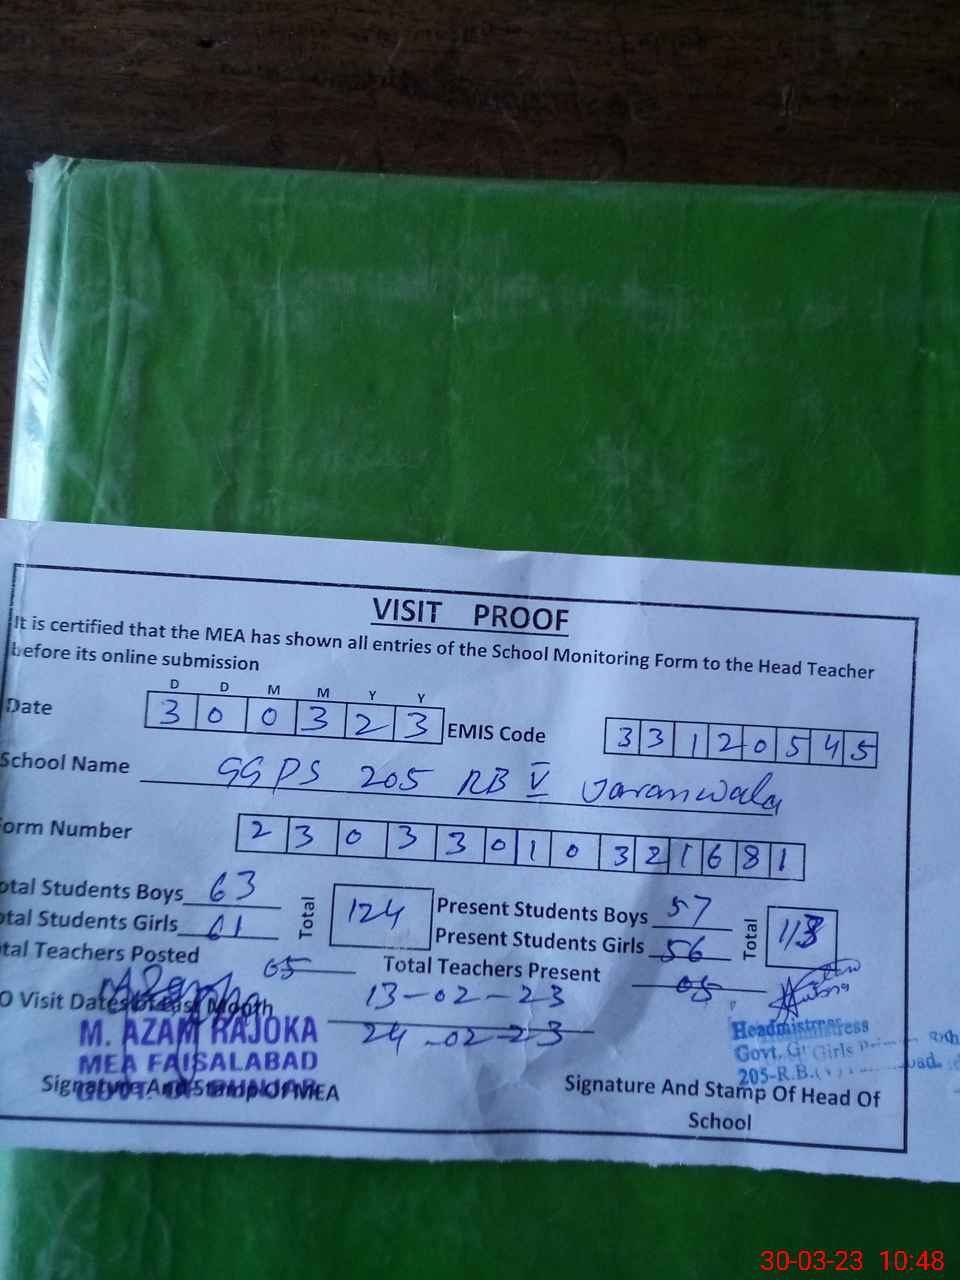 VISIT PROOF
It is certified that the MEA has shown all entries of the School Monitoring Form to the Head Teacher
before its online submission
D D M M Y Y
Date 3 0 0 3 2 3 EMIS Code 3 3 1 2 0 5 4 5
School Name GGPS 205 RB V
orm Number 2 3 0 3 3 0 1 0 3 2 1 6 8 1
otal Students Boys 63 Total 124 Present Students Boys 57 Total 113
otal Students Girls 61 Present Students Girls 56
tal Teachers Posted 05 Total Teachers Present 05
O Visit Dates of Past Month 13-02-23
24-02-23
M. AZAM RAJOKA
MEA FAISALABAD
GOVT. OF PUNJAB
Signature And Stamp Of MEA
Headmistress
Govt. Girls
205-R.B.
Signature And Stamp Of Head Of
School
30-03-23 10:48